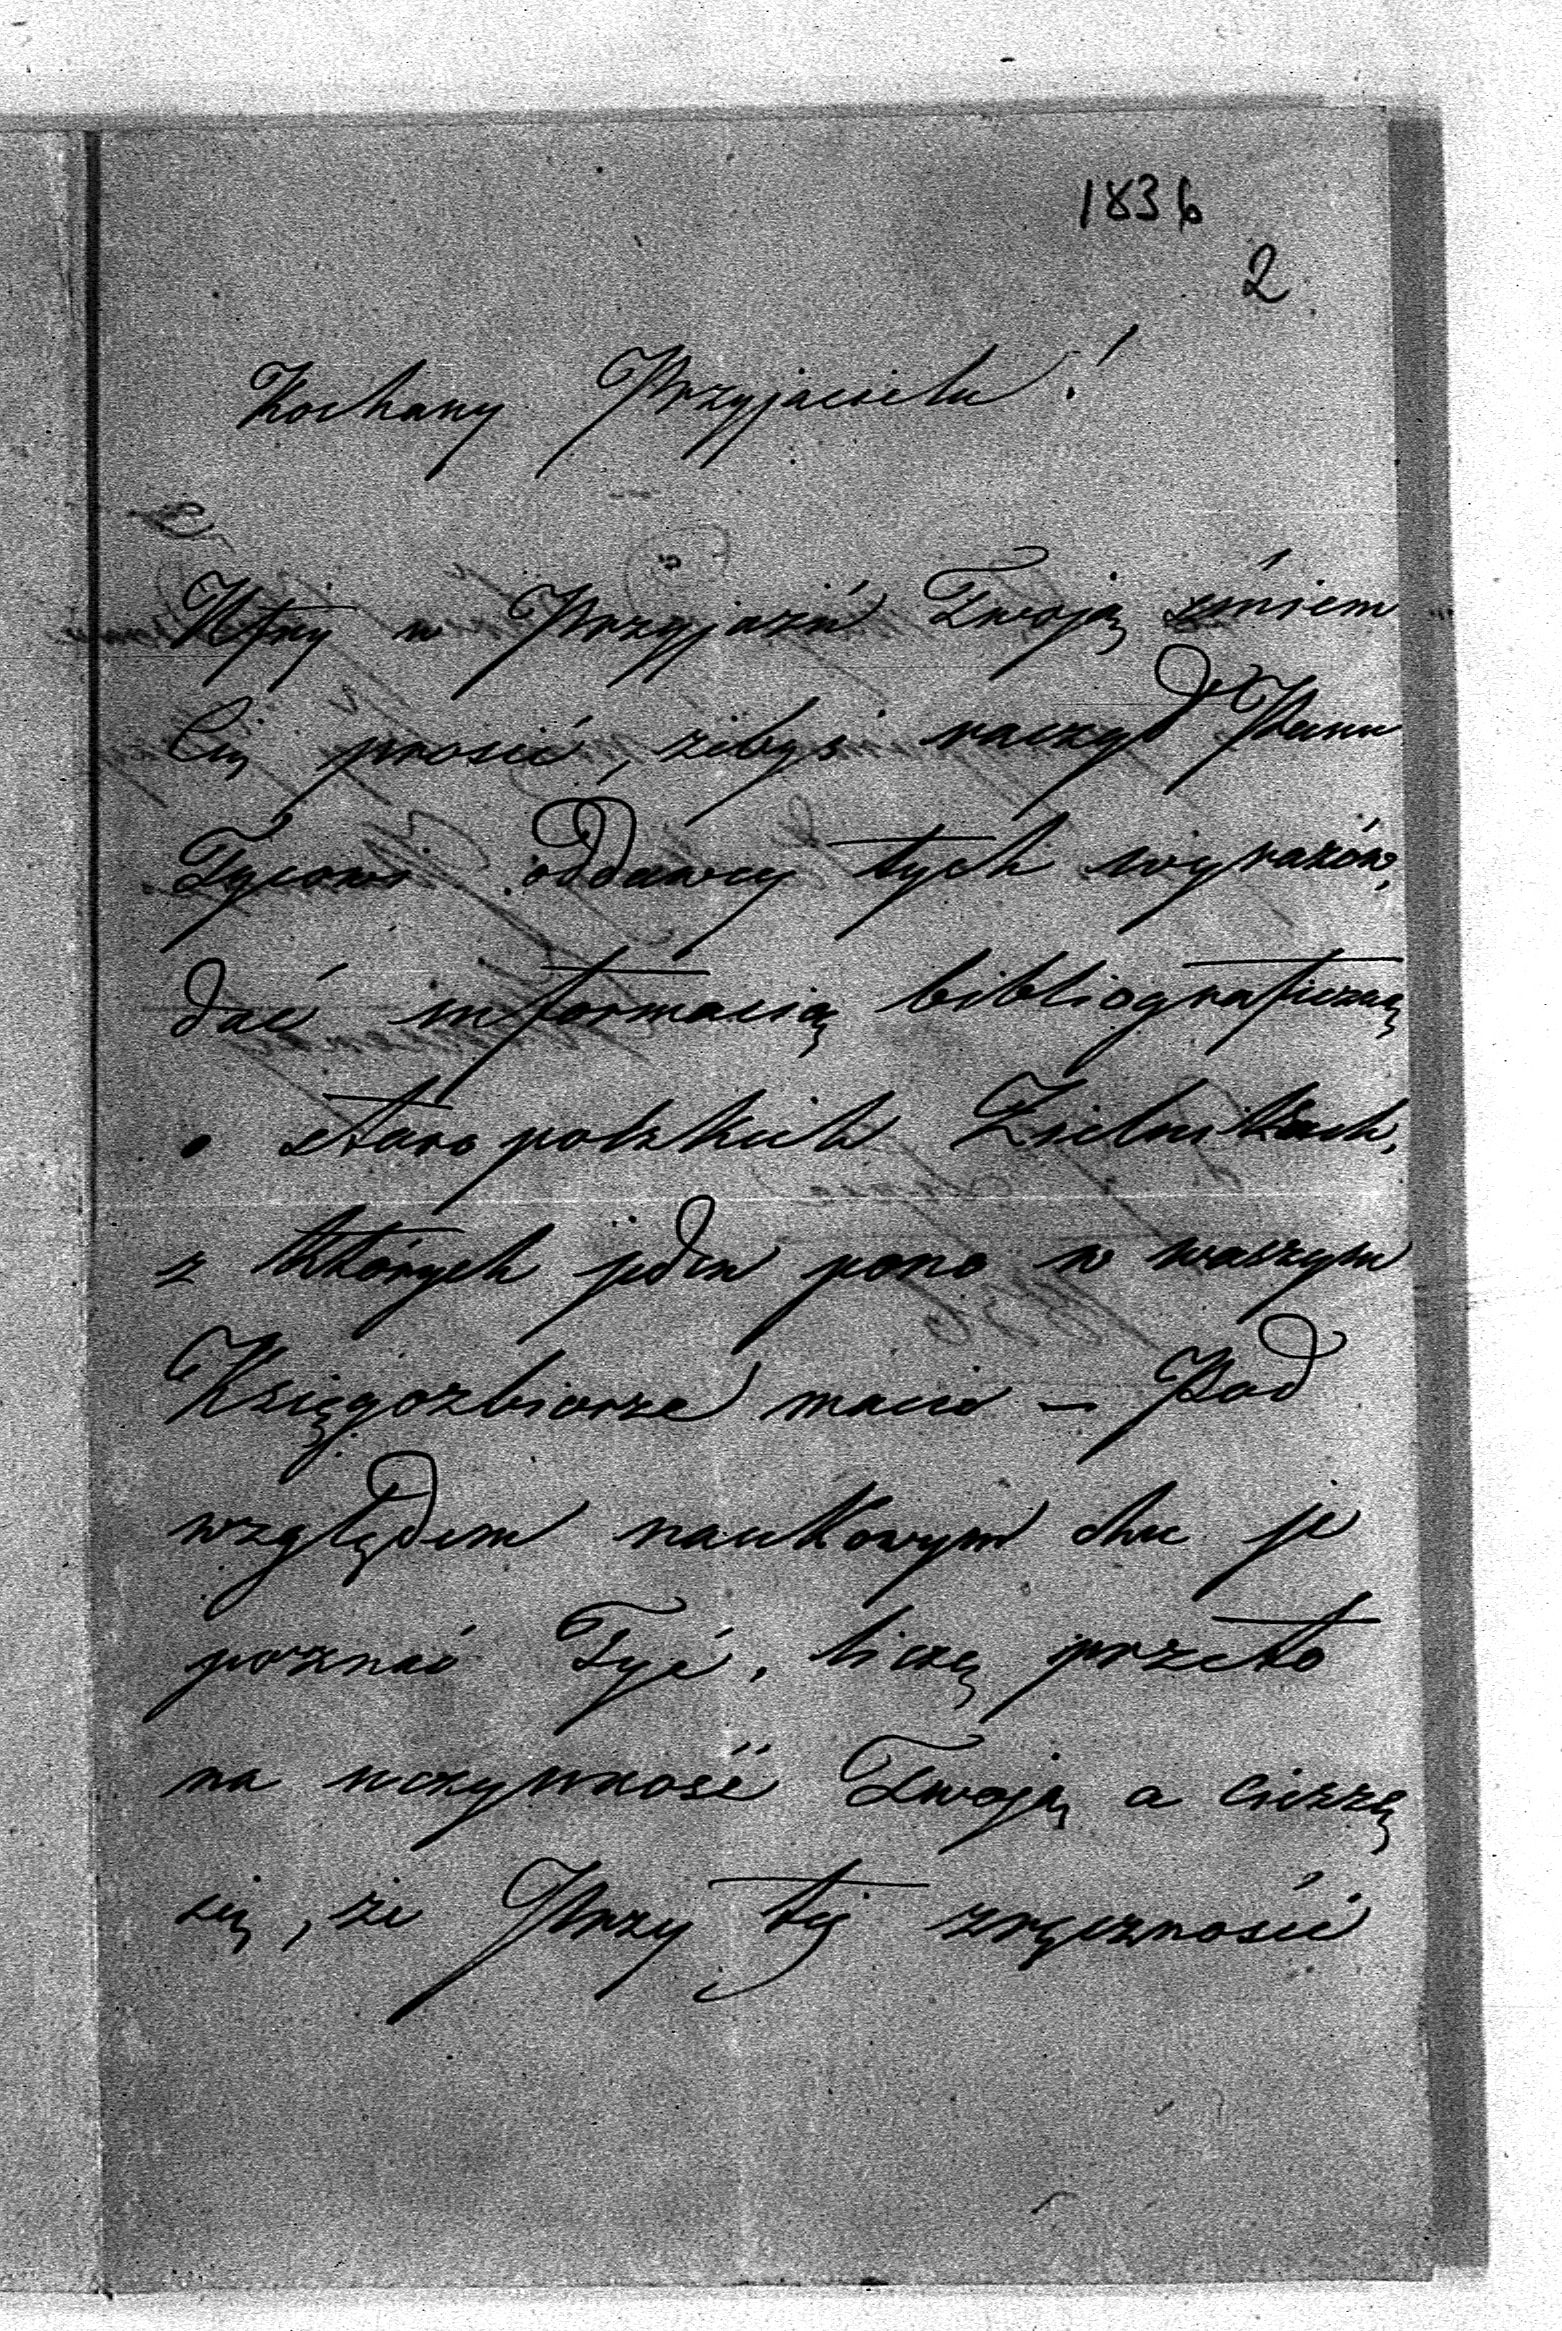 1836
2
Kochany Przyjacielu!
Ufny w Przyjaźń Twoją śmiem
Cię prosić, żebyś raczył Panu
Tycowi oddawcy tych wyrazów,
dać informacią bibliograficzną
o staropolskich Zielnikach,
z których jeden pono w waszym
Księgozbiorze macie – Pod
względem naukowym chce je
poznać Tyc, liczę przeto
na uczynność Twoją a cieszę
się, że Przy tej zręczności